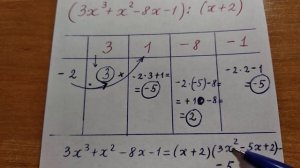 (3x³+x²-8x-1):(x+2)
3 1 -8 -1
-2 3 × -2·3+1= -2·(-5)-8= -2·2-1
= -5 =+10-8= = -5
= 2
3x³+x²-8x-1=(x+2)(3x²-5x+2)-
-5